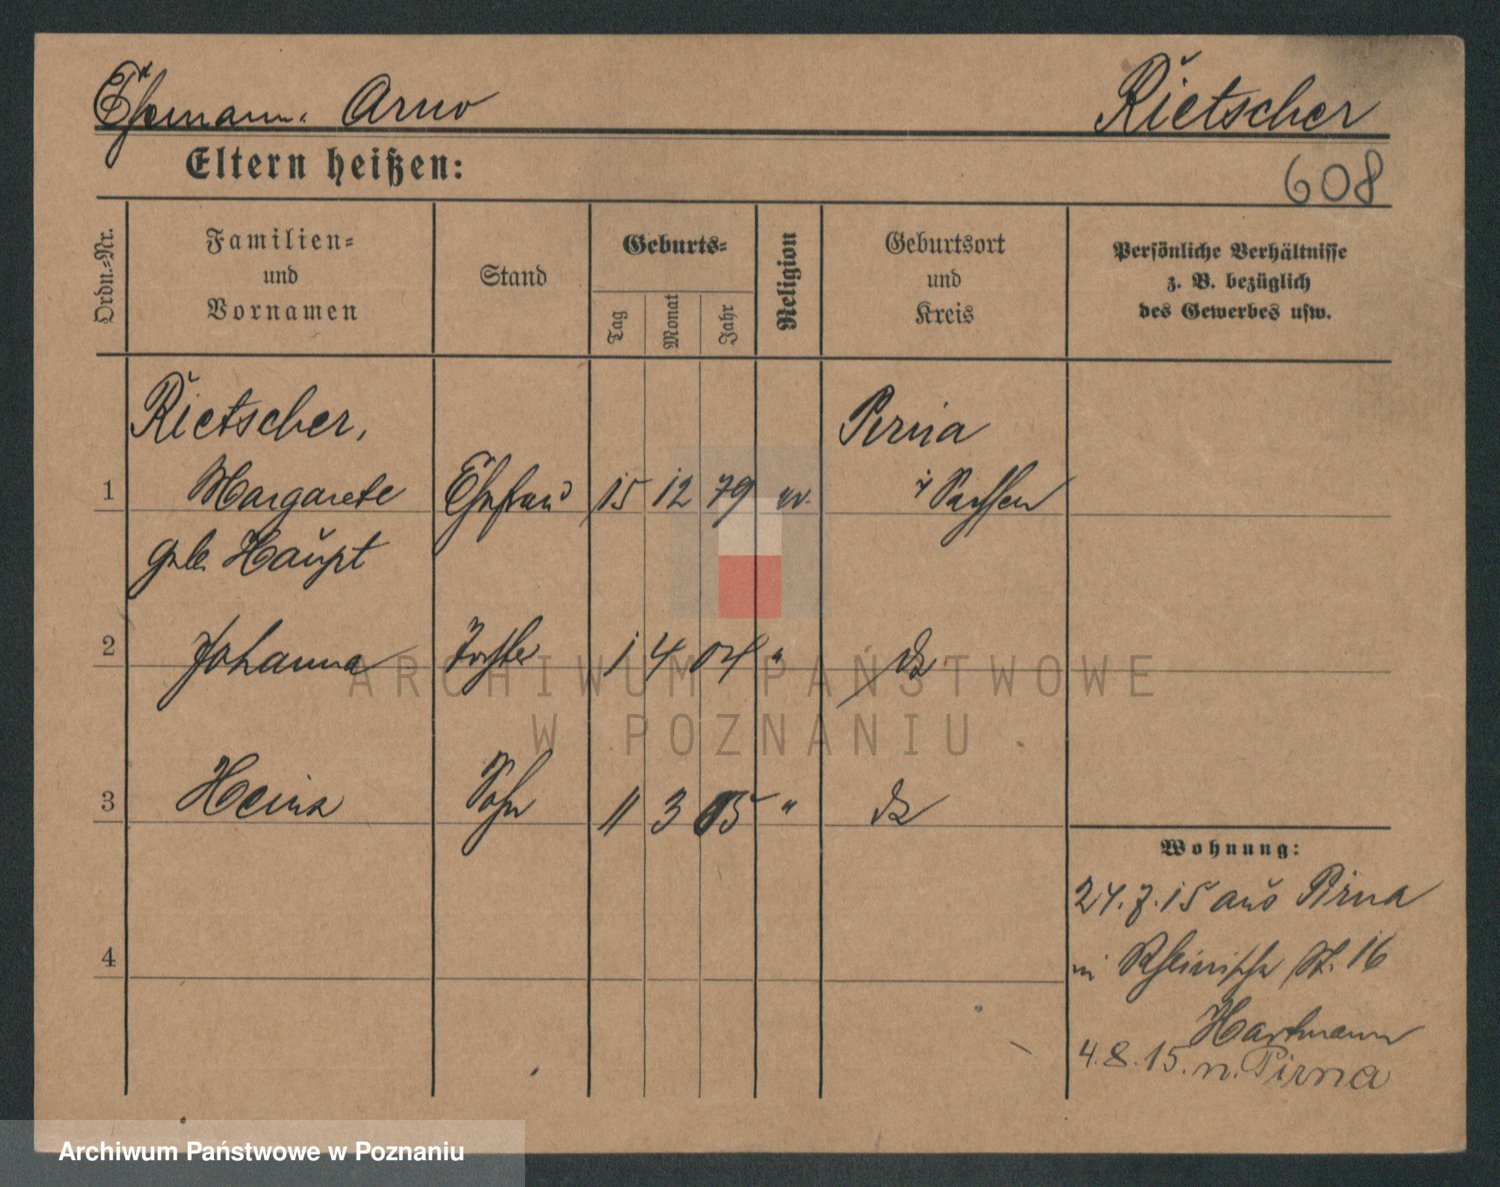 Ehemann: Arno Rietscher
Eltern heißen:
608
Ordn.-Nr.
Familien-
und
Vornamen
Stand
Geburts-
Tag
Monat
Jahr
Religion
Geburtsort
und
Kreis
Persönliche Verhältnisse
z. B. bezüglich
des Gewerbes usw.
Rietscher, Pirna
1 Margarete Ehefrau 15 12 79 ev. i/ Sachsen
geb. Haupt
2 Johanna Tochter 1 4 04 " do
3 Heinz Sohn 11 3 05 " do
4
Wohnung:
24.7.15 aus Pirna
in Rheinische St. 16
Hartmann
4.8.15. n. Pirna
ARCHIWUM PAŃSTWOWE
W POZNANIU
Archiwum Państwowe w Poznaniu